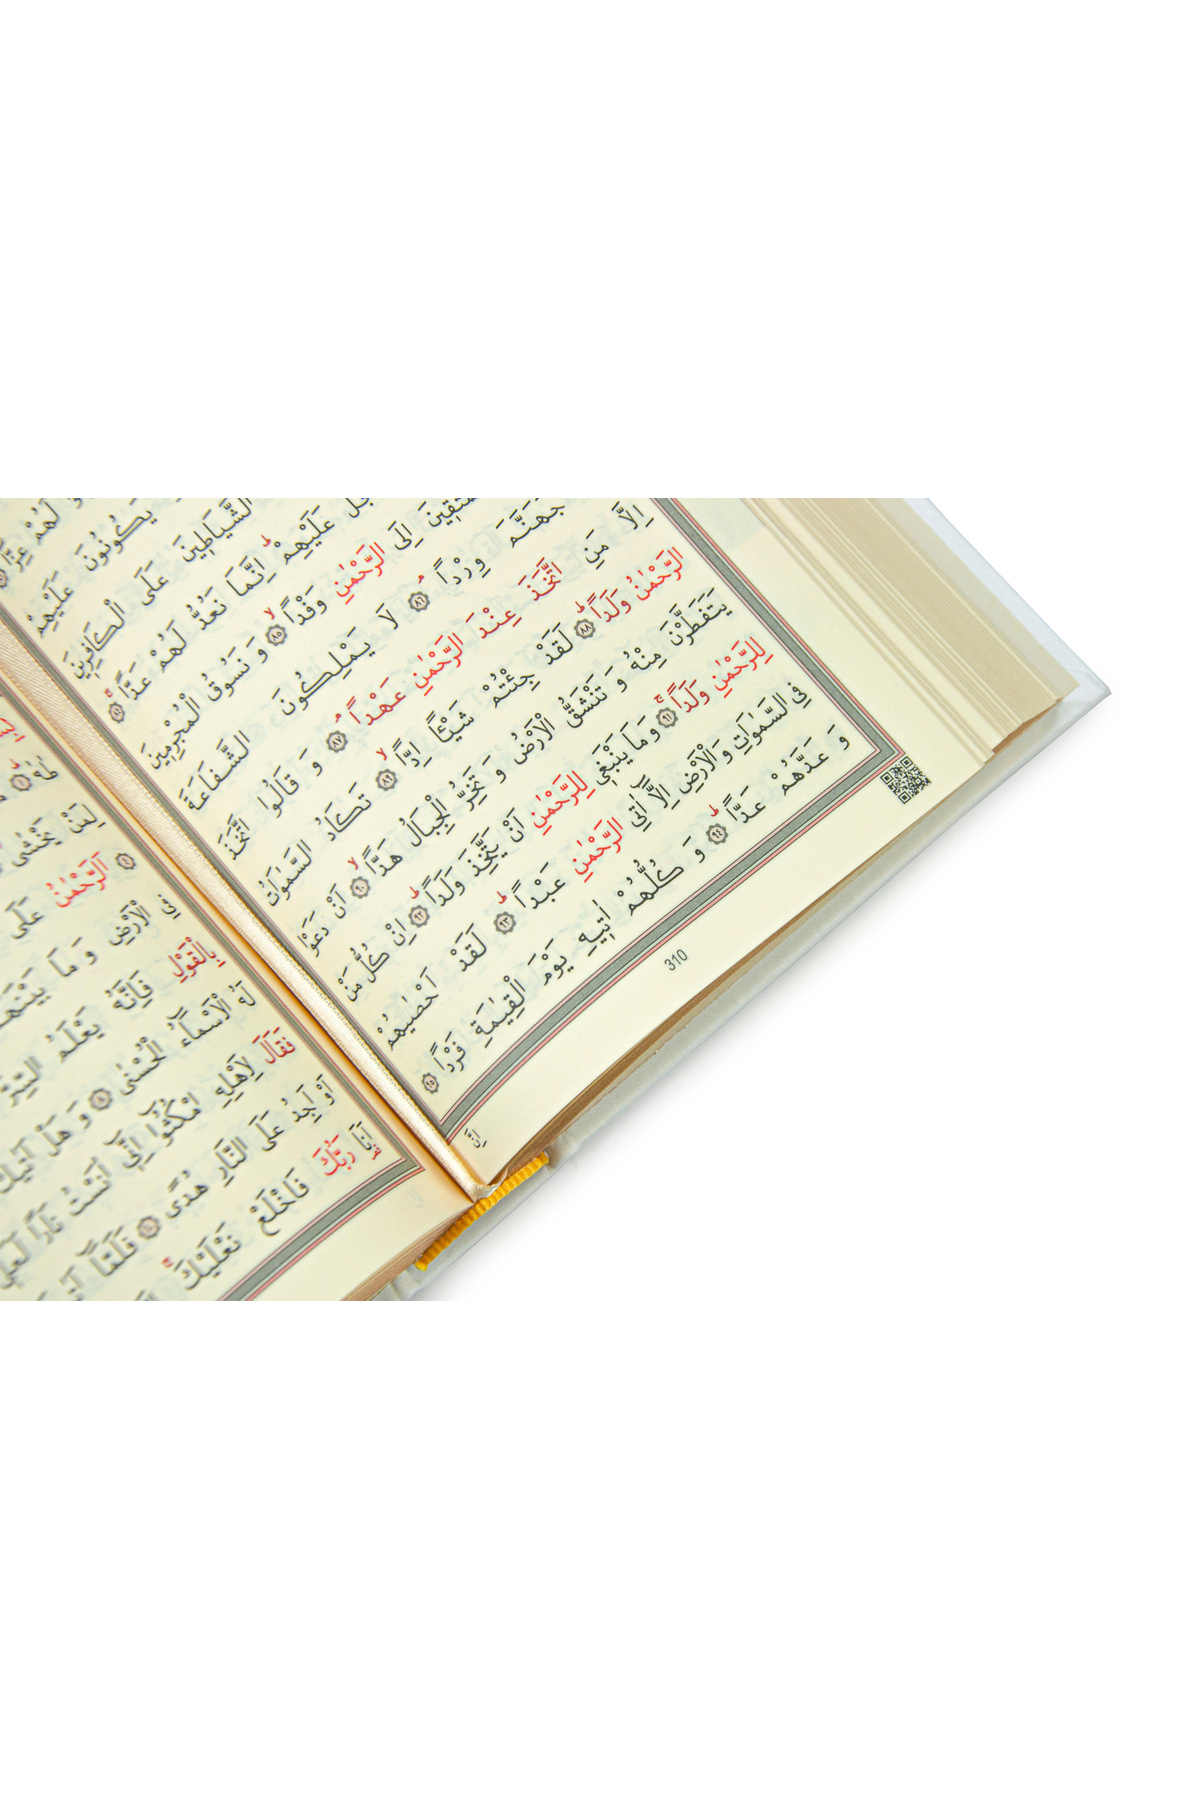 لَهُمْ عِزًّا
يَكُونُونَ عَلَيْهِمْ
الشَّيَاطِينَ عَلَى الْكَافِرِينَ
عَلَيْهِمْ اِنَّمَا نَعُدُّ لَهُمْ عَدًّا ﴿٨٤﴾
اِلَى الرَّحْمٰنِ وَفْدًا ﴿٨٥﴾ وَ نَسُوقُ الْمُجْرِمِينَ
جَهَنَّمَ وِرْدًا ﴿٨٦﴾ لَا يَمْلِكُونَ الشَّفَاعَةَ
اِلَّا مَنِ اتَّخَذَ عِنْدَ الرَّحْمٰنِ عَهْدًا ﴿٨٧﴾ وَ قَالُوا اتَّخَذَ
الرَّحْمٰنُ وَلَدًا ﴿٨٨﴾ لَقَدْ جِئْتُمْ شَيْئًا اِدًّا ﴿٨٩﴾ تَكَادُ السَّمٰوَاتُ
يَتَفَطَّرْنَ مِنْهُ وَ تَنْشَقُّ الْاَرْضُ وَ تَخِرُّ الْجِبَالُ هَدًّا ﴿٩٠﴾ اَنْ دَعَوْا
لِلرَّحْمٰنِ وَلَدًا ﴿٩١﴾ وَمَا يَنْبَغِي لِلرَّحْمٰنِ اَنْ يَتَّخِذَ وَلَدًا ﴿٩٢﴾ اِنْ كُلُّ مَنْ
فِي السَّمٰوَاتِ وَالْاَرْضِ اِلَّٓا اٰتِي الرَّحْمٰنِ عَبْدًا ﴿٩٣﴾ لَقَدْ اَحْصٰيهُمْ
وَ عَدَّهُمْ عَدًّا ﴿٩٤﴾ وَ كُلُّهُمْ اٰتِيهِ يَوْمَ الْقِيٰمَةِ فَرْدًا ﴿٩٥﴾
310
اِنَّا
طٰهٰ ﴿١﴾
لِمَنْ يَخْشٰى
﴿٤﴾ اَلرَّحْمٰنُ عَلَى
فِي الْاَرْضِ وَ مَا بَيْنَهُمَا
بِالْقَوْلِ فَاِنَّهُ يَعْلَمُ السِّرَّ
لَهُ الْاَسْمَٓاءُ الْحُسْنٰى ﴿٨﴾ وَ هَلْ اَتٰيكَ
فَقَالَ لِاَهْلِهِ امْكُثُٓوا اِنِّٓي اٰنَسْتُ نَارًا لَعَلِّٓي
اَوْ اَجِدُ عَلَى النَّارِ هُدًى ﴿١٠﴾ فَلَمَّٓا
اَنَا رَبُّكَ فَاخْلَعْ نَعْلَيْكَ